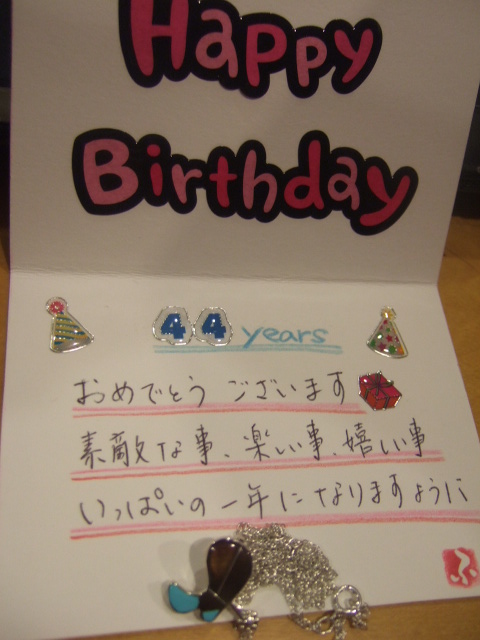 Happy
Birthday
44 years
おめでとう ございます
素敵な事、楽しい事、嬉しい事
いっぱいの一年になりますように
ふ